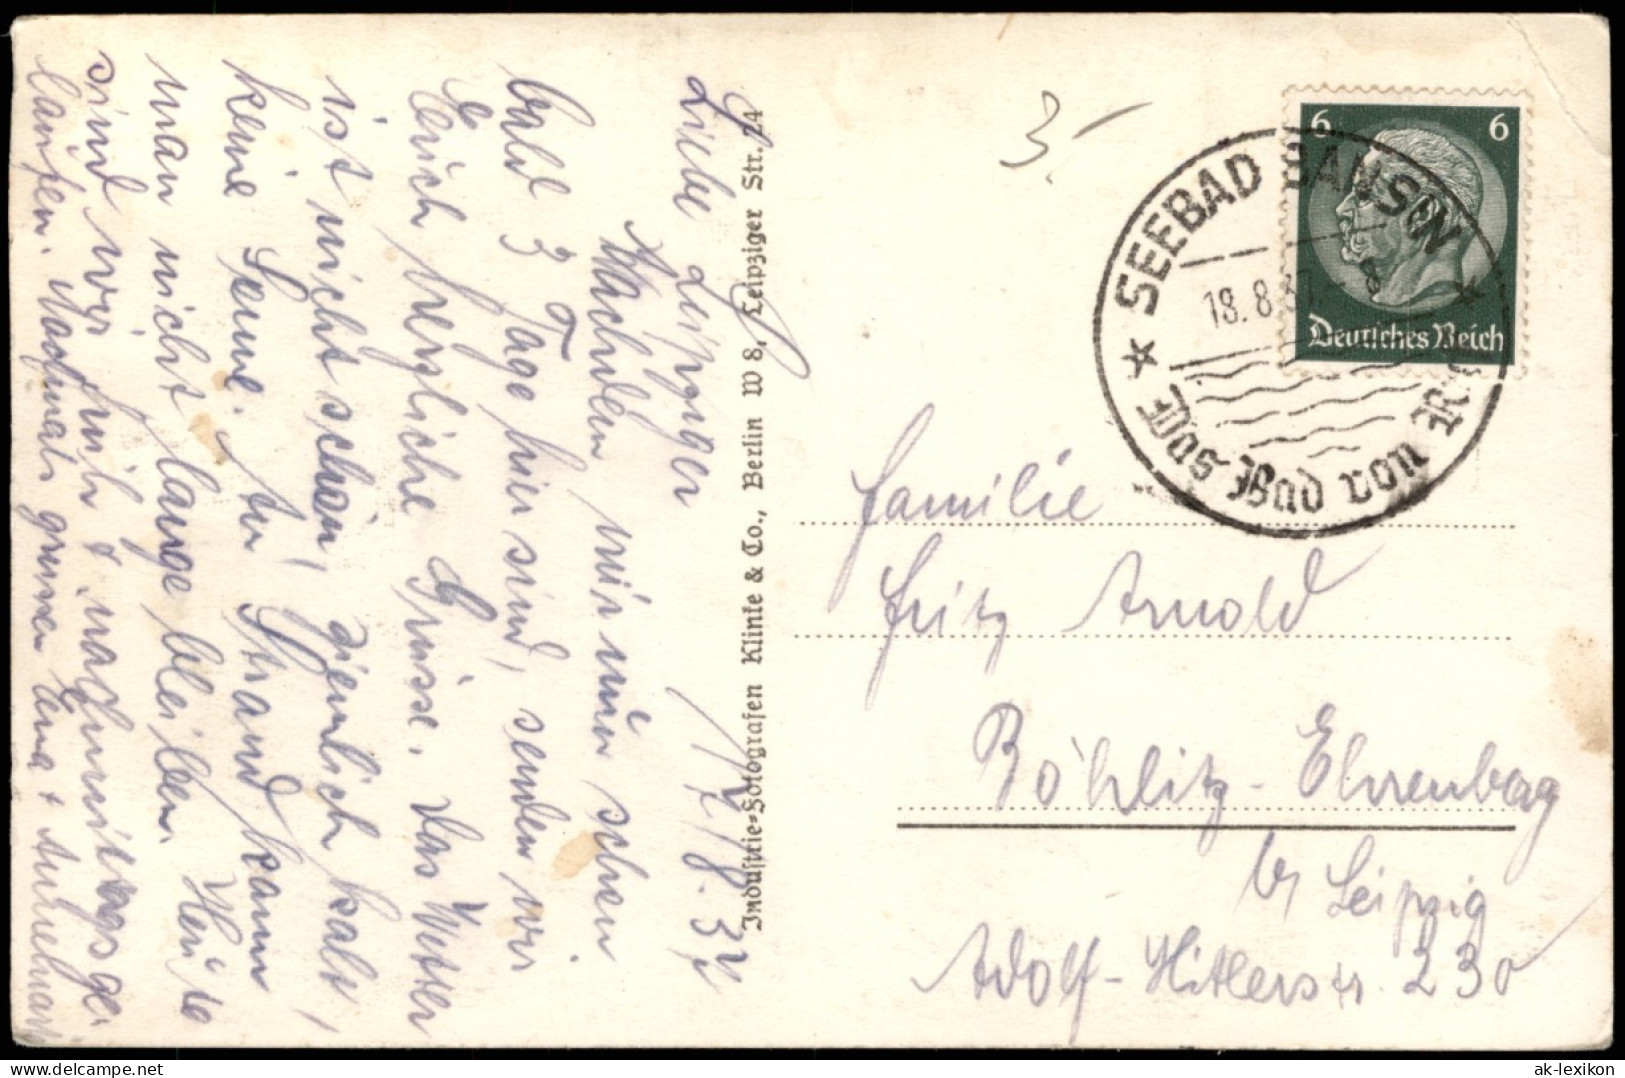 17.8.37
Liebe Leipziger
Nachdem wir nun schon
bald 3 Tage hier sind, senden wir
Euch herzliche Grüsse. Das Wetter
ist nicht schön, ziemlich kalt,
keine Sonne. Am Strand kann
man nicht lange bleiben.
sind wir früh & nachmittags ge-
laufen. Nochmals grüssen Euch
Industrie-Fotografen Klinke & Co., Berlin W 8, Leipziger Str. 24
3.-
6 6
Deutsches Reich
SEEBAD BANSIN
18.8.37
Das Bad von
Familie
Fritz Arnold
Böhlitz-Ehrenberg
b/ Leipzig
Adolf-Hitlerstr. 230
ak-lexikon